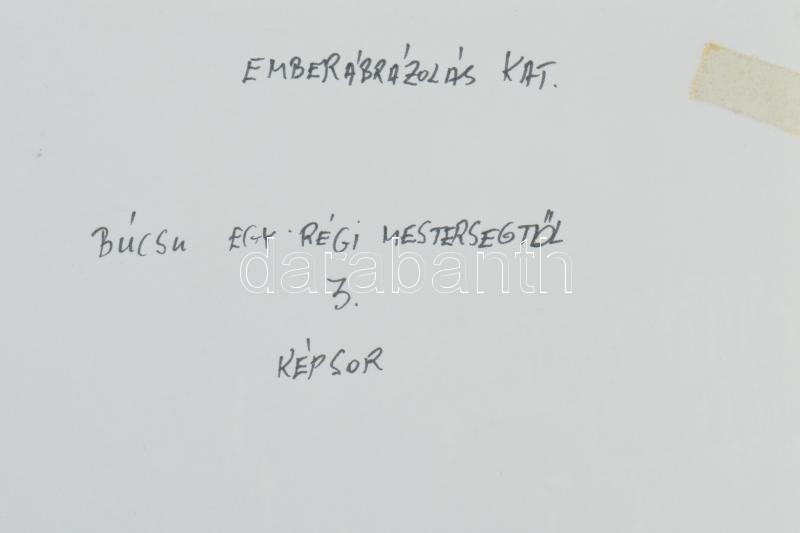 EMBERÁBRÁZOLÁS KAT.
BÚCSU EGY RÉGI MESTERSEGTŐL
darabanth
3.
KÉPSOR